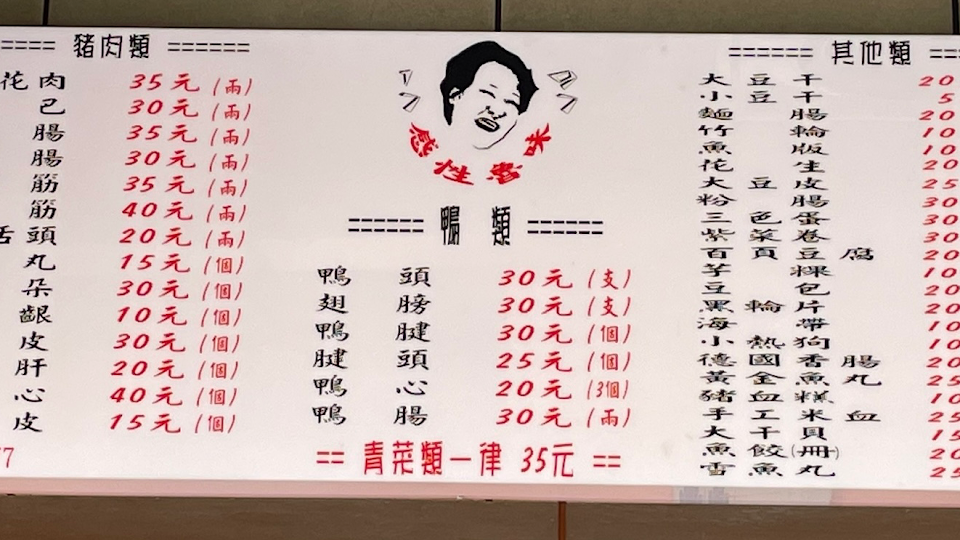 ==== 豬肉類 ======
花肉 35元(兩)
巴 30元(兩)
腸 35元(兩)
腸 30元(兩)
筋 35元(兩)
筋 40元(兩)
舌頭 20元(兩)
丸 15元(個)
朵 30元(個)
齦 10元(個)
皮 30元(個)
肝 20元(個)
心 40元(個)
皮 15元(個)
感性滷味
====== 鴨類 ======
鴨頭 30元(支)
翅膀 30元(支)
鴨腱 30元(個)
腱頭 25元(個)
鴨心 20元(3個)
鴨腸 30元(兩)
== 青菜類一律 35元 ==
====== 其他類 ==
大豆干 20
小豆干 5
麵腸 20
竹輪 10
魚版 10
花生 20
大豆皮 25
粉腸 30
三色蛋 30
紫菜卷 30
百頁豆腐 20
芋粿 10
豆包 20
黑輪片 20
海帶 10
小熱狗 10
德國香腸 20
黃金魚丸 25
豬血糕 10
手工米血 25
大干貝 15
魚餃(冊) 20
香魚丸 25